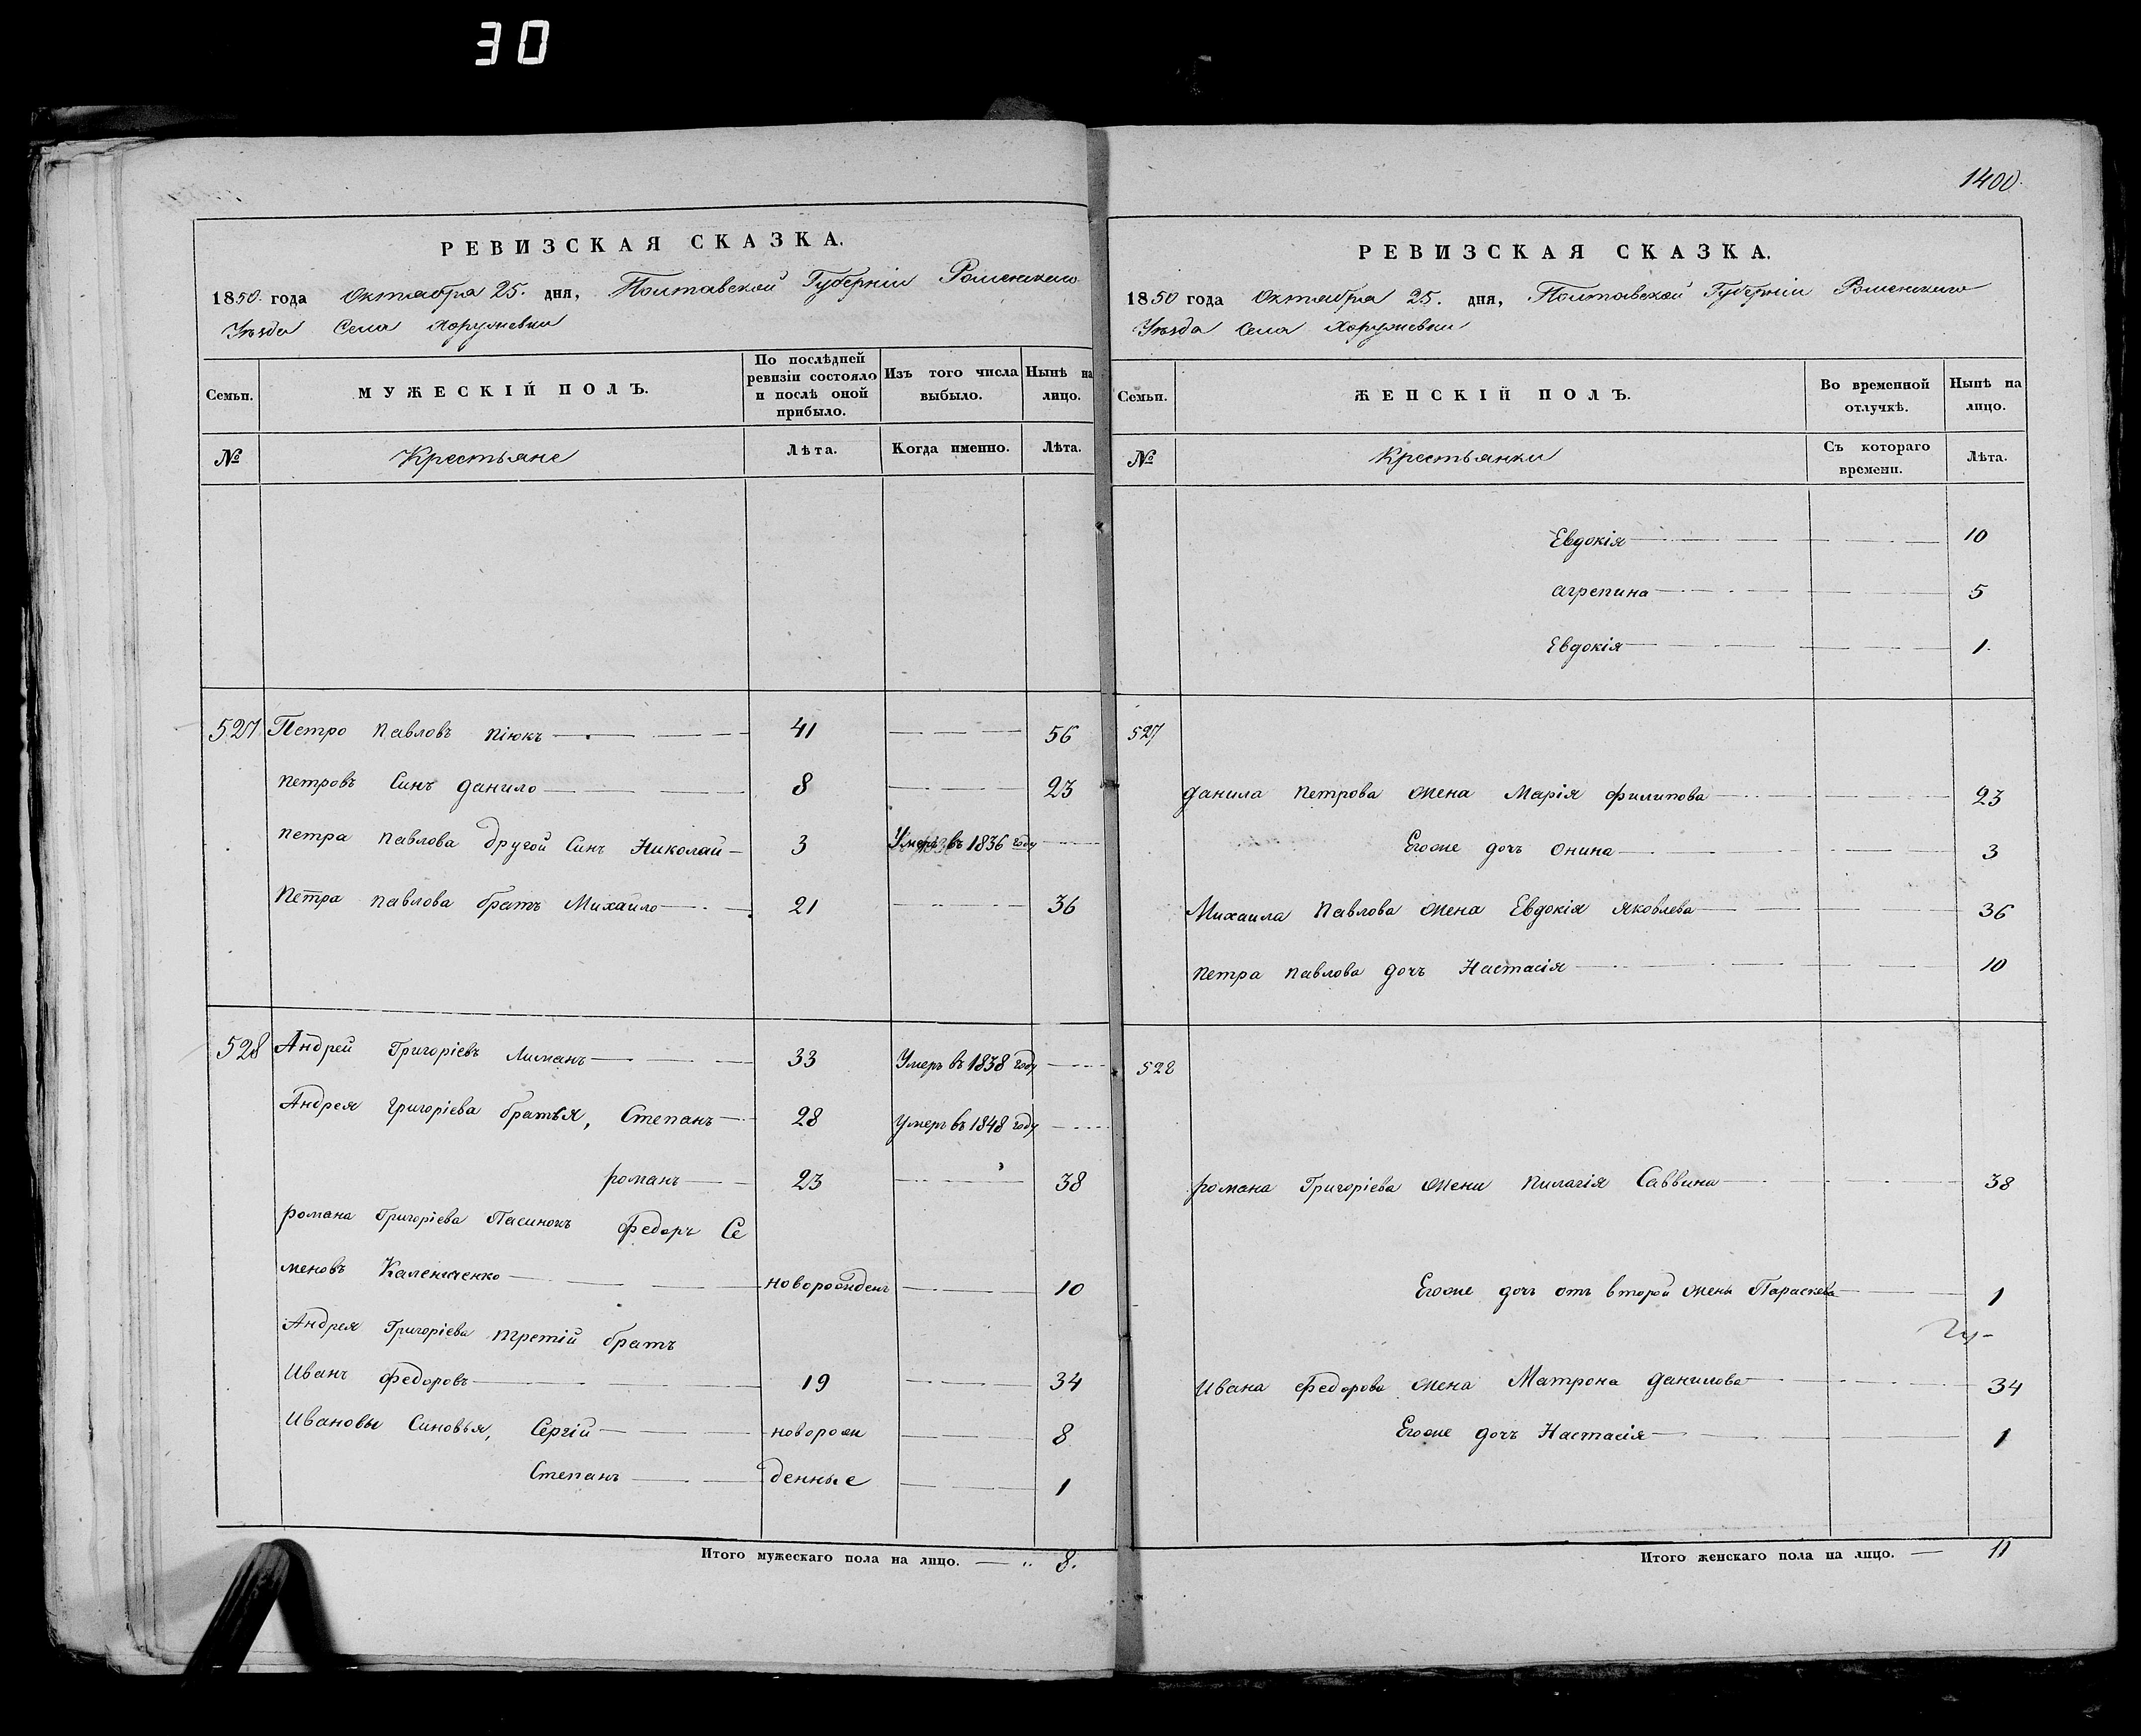 30
РЕВИЗСКАЯ СКАЗКА.
1850. года Октября 25. дня, Полтавской Губерніи Роменскаго
Уѣзда Села Хоружевки
Семьи.
МУЖЕСКІЙ ПОЛЪ.
По послѣдней
ревизіи состояло
и послѣ оной
прибыло.
Изъ того числа
выбыло.
Нынѣ на
лицо.
№
Крестьяне
Лѣта.
Когда именно.
Лѣта.
527 Петро павловъ піюкъ 41 56
петровъ Синъ данило 8 23
петра павлова другой Синъ Николай 3 Умеръ въ 1836 году
Петра павлова братъ Михаило 21 36
528 Андрей Григоріевъ Лиманъ 33 Умеръ въ 1838 году
Андрея григоріева братья, Степанъ 28 умеръ въ 1848 году
романъ 23 38
романа Григоріева Пасинокъ Федоръ Се
меновъ Калениченко новорожденъ 10
Андрея Григоріева третій братъ
Иванъ Федоровъ 19 34
Ивановы Синовья, Сергій новорож 8
Степанъ денные 1
Итого мужескаго пола на лицо. — 8.
1400.
РЕВИЗСКАЯ СКАЗКА.
1850 года Октября 25. дня, Полтавской Губерніи Роменскаго
Уѣзда Села Хоружевки
Семьи.
ЖЕНСКІЙ ПОЛЪ.
Во временной
отлучкѣ.
Нынѣ на
лицо.
№
Крестьянки
Съ котораго
времени.
Лѣта.
Евдокія 10
агрепина 5
Евдокія 1.
527
данила петрова жена Марія филипова 23
Егоже дочъ Онина 3
Михаила павлова жена Евдокія яковлева 36
петра павлова дочъ Настасія 10
528
романа Григоріева жени пилагія Саввина 38
Егоже дочъ отъ второй жены Параскева 1
Ивана Федорова жена Матрона данилова 34
Егоже дочъ Настасія 1
Итого женскаго пола на лицо. — 11